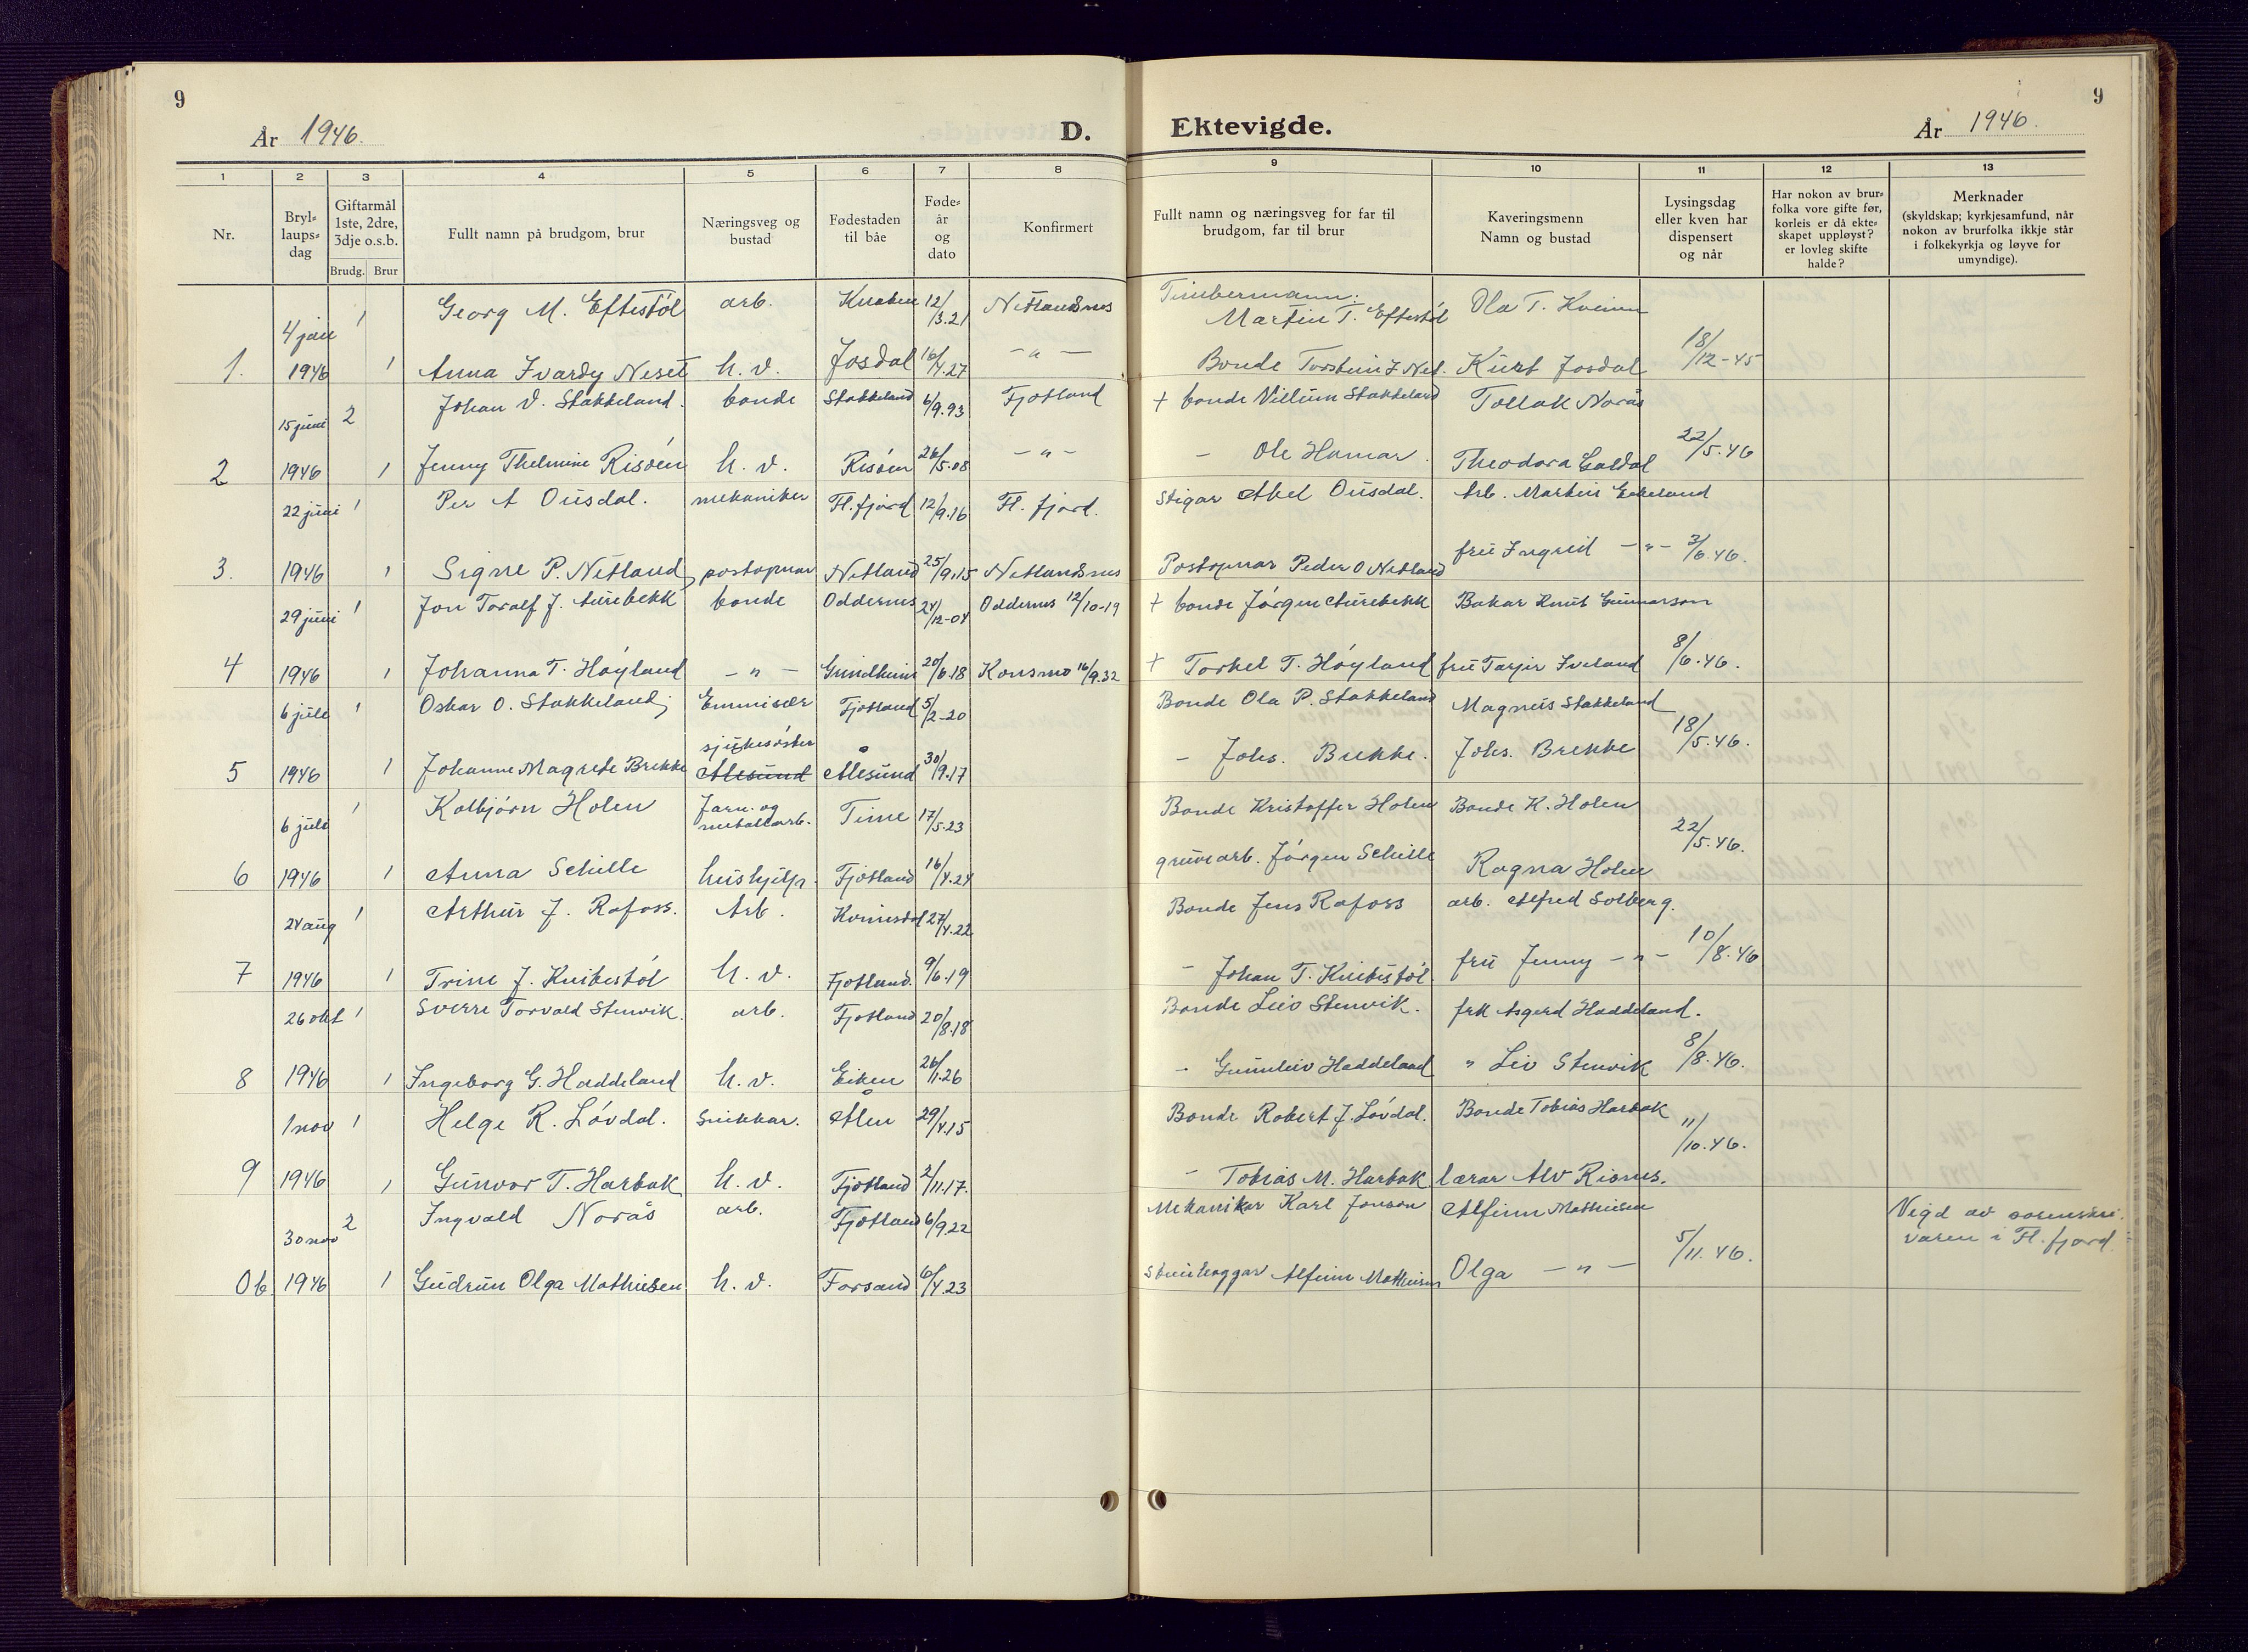 9
År 1946.
D.
Ektevigde.
År 1946.
9
1 2 3 4 5 6 7 8 9 10 11 12 13
Nr.
Bryl-
laups-
dag
Giftarmål
1ste, 2dre,
3dje o.s.b.
Brudg. Brur
Fullt namn på brudgom, brur
Næringsveg og
bustad
Fødestaden
til båe
Føde-
år
og
dato
Konfirmert
Fullt namn og næringsveg for far til
brudgom, far til brur
Kaveringsmenn
Namn og bustad
Lysingsdag
eller kven har
dispensert
og når
Har nokon av brur-
folka vore gifte før,
korleis er då ekte-
skapet uppløyst?
er lovleg skifte
halde?
Merknader
(skyldskap; kyrkjesamfund, når
nokon av brurfolka ikkje står
i folkekyrkja og løyve for
umyndige).
4 jan 1 Georg M. Eftestøl arb. Knaben 12/3.21 Netlandsnes Timbermann: Martin T. Eftestøl Ola T. Kveinn
1. 1946 1 Anna Ivardy Neset h. v. Josdal 16/4.27 - " - Bonde Torstein I Nes. Kurt Josdal 18/12-45
15 juni 2 Johan V. Stakkeland. bonde Stakkeland 6/9.93 Fjotland + bonde Villum Stakkeland Tollak Norås
2 1946 1 Jenny Thelmine Risøen h. v. Risøen 26/5.08 - " - - Ole Hamar. Theodora Galdal 22/5.46
22 juni 1 Per A Ousdal. mekaniker Fl. fjord 12/9.16 Fl. fjord. Stigar Abel Ousdal. Arb. Martin Eikeland
3. 1946 1 Signe P. Netland, postopnar Netland 25/9.15 Netlandsnes Postopnar Peder O Netland fru Ingrid - " - 3/6.46.
29 juni 1 Jon Toralf J. Aurebekk bonde Oddernes 24/12-04 Oddernes 12/10-19 + bonde Jørgen Aurebekk Bakar Knut Gunnarson
4 1946 1 Johanna T. Høyland - " - Grindheim 20/6.18 Konsmo 16/9.32 + Torkel T. Høyland fru Tarjer Iveland 8/6.46.
6 juli 1 Oskar O. Stakkeland, Emmisær Fjotland 5/2-20 Bonde Ola P. Stakkeland Magnus Stakkeland
5 1946 1 Johanne Magrete Brekke sjukesøster Ålesund Ålesund 30/9.17 - Johs. Brekke. Johs. Brekke 18/5.46.
6 juli 1 Kolbjørn Holen Jarn- og metallarb. Time 17/5.23 Bonde Kristoffer Holen Bonde K. Holen
6 1946 1 Anna Schille hushjelp. Fjotland 16/4.24 gruvearb. Jørgen Schille Ragna Holen 22/5.46.
24 aug 1 Arthur J. Rafoss. Arb. Kvinesdal 27/4.22 Bonde Jens Rafoss arb. Alfred Solberg.
7 1946 1 Trine J. Knibestøl h. v. Fjotland. 9/6.19 - Johan T. Knibestøl. fru Jenny - " - 10/8.46
26 okt 1 Sverre Torvald Stenvik. arb. Fjotland 20/8.18 Bonde Leiv Stenvik. frk Asgerd Haddeland.
8 1946 1 Ingeborg G. Haddeland h. v. Eiken 26/11.26 - Gunnleiv Haddeland " Liv Stenvik 8/8.46.
1 nov 1 Helge R. Løvdal. Snikkar. Ålen 29/4.15 Bonde Robert J. Løvdal. Bonde Tobias Harbak
9 1946 1 Gunvor T. Harbak h. v. Fjotland 2/11.17. - Tobias M. Harbak lærar Alv Risnes. 11/10.46.
30 nov 2 Ingvald Norås arb. Fjotland 6/9.22 Mekanikar Karl Jonson Alfinn Mathiesen Vigd av sorenskri-
varen i Fl. fjord.
Ob 1946 1 Gudrun Olga Mathiesen h. v. Forsand 6/4.23 Steinhoggar Alfinn Mathiesen Olga - " - 5/11.46.